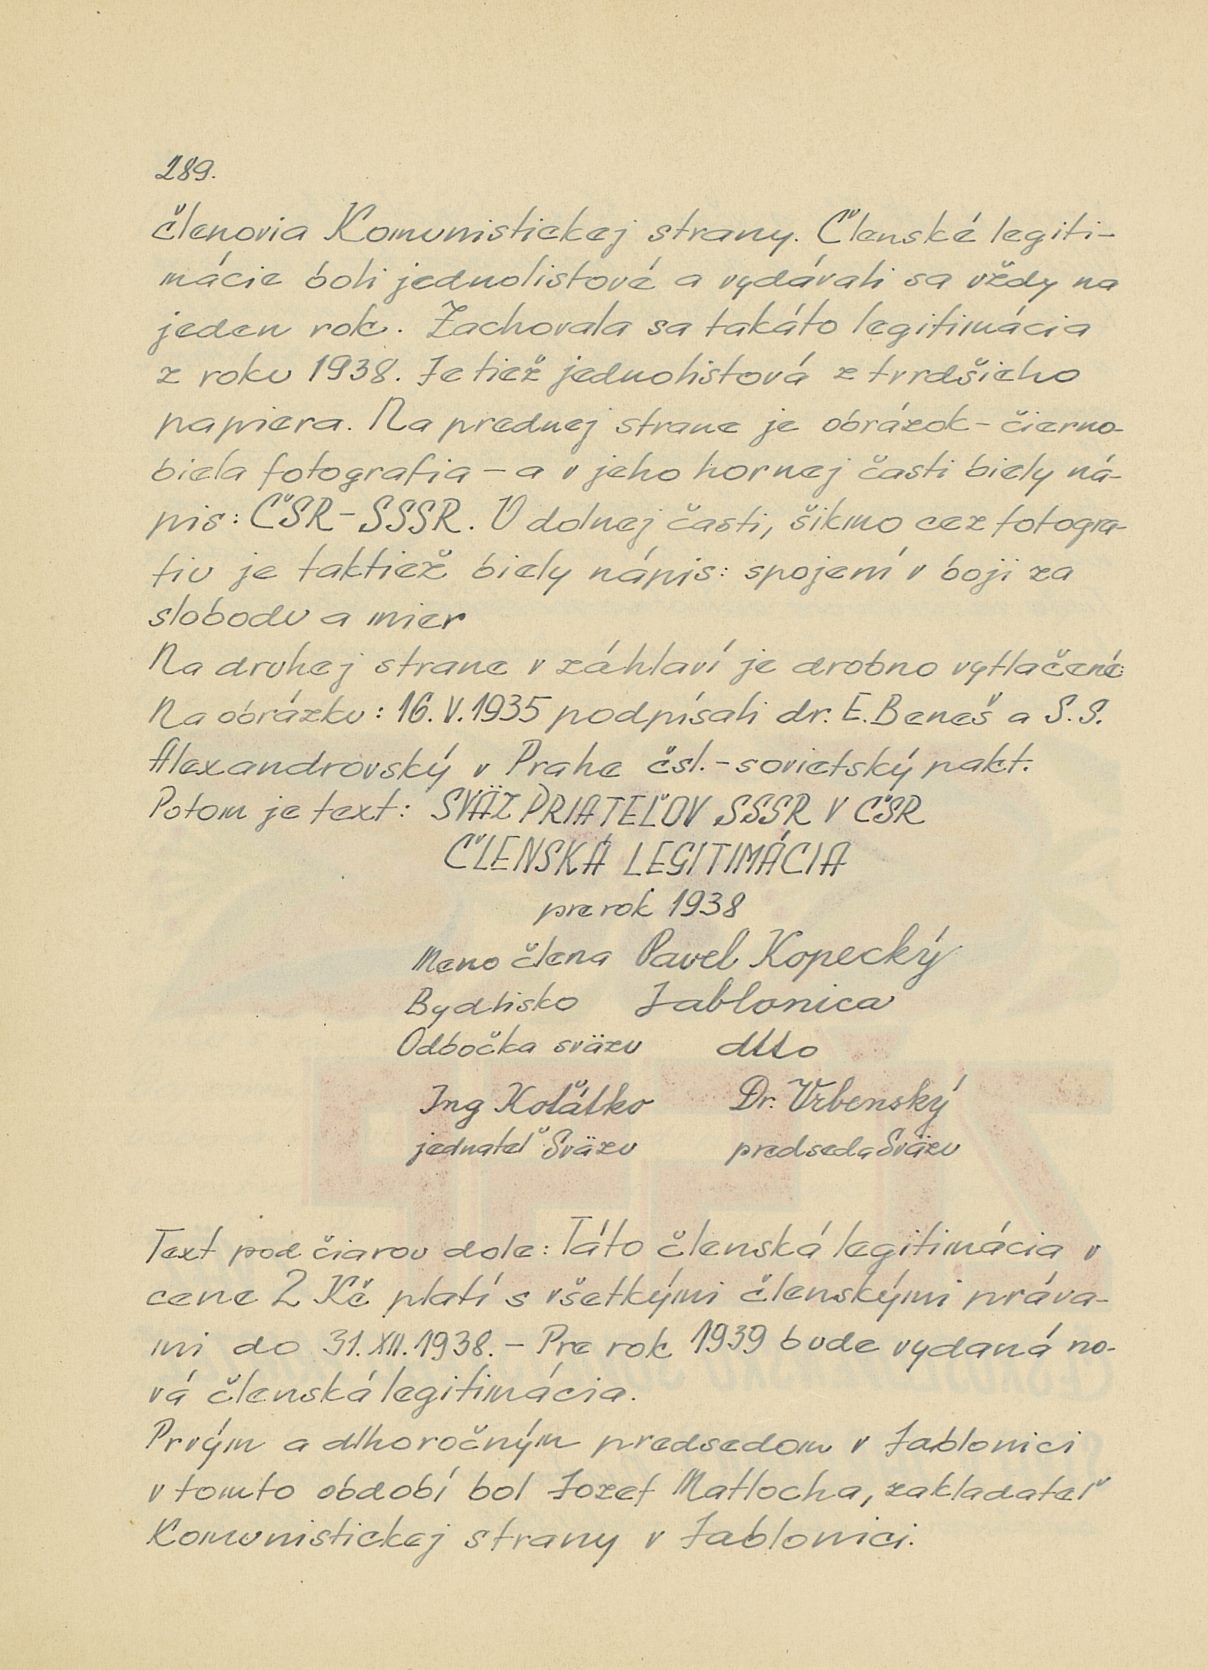 289.
členovia Komunistickej strany. Členské legiti-
mácie boli jednolistové a vydávali sa vždy na
jeden rok. Zachovala sa takáto legitimácia
z roku 1938. Je tiež jednolistová z tvrdšieho
papiera. Na prednej strane je obrázok - čierno-
biela fotografia - a v jeho hornej časti biely ná-
pis: ČSR - SSSR. V dolnej časti, šikmo cez fotogra-
fiu je taktiež biely nápis: spojení v boji za
slobodu a mier
Na druhej strane v záhlaví je drobno vytlačené:
Na obrázku: 16. V. 1935 podpísali dr. E. Beneš a S. S.
Alexandrovský v Prahe čsl. - sovietský pakt.
Potom je text: SVÄZ PRIATEĽOV SSSR V ČSR
ČLENSKÁ LEGITIMÁCIA
pre rok 1938
Meno člena Pavel Kopecký
Bydlisko Jablonica
Odbočka sväzu dtto
Ing Koťátko Dr. Vrbenský
jednateľ Sväzu predseda Sväzu
Text pod čiarou dole: Táto členská legitimácia v
cene 2 Kč platí s všetkými členskými práva-
mi do 31. XII. 1938. - Pre rok 1939 bude vydaná no-
vá členská legitimácia.
Prvým a dlhoročným predsedom v Jablonici
v tomto období bol Jozef Matlocha, zakladateľ
Komunistickej strany v Jablonici.